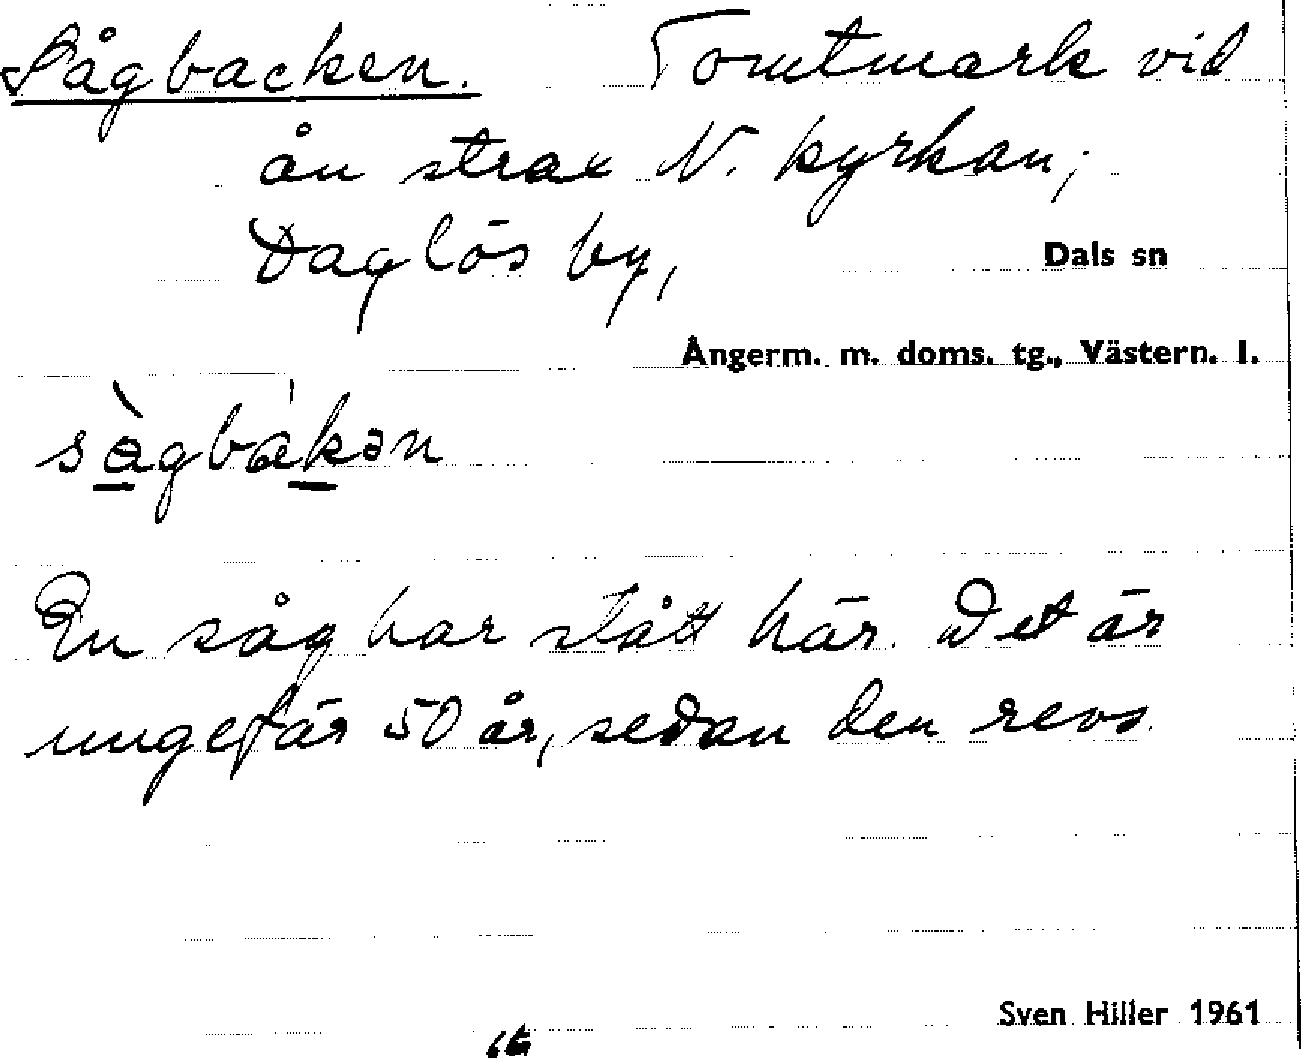 Sågbacken. Tomtmark vid
ån strax N. kyrkan;
Daglös by, Dals sn
Ångerm. m. doms. tg., Västern. l.
sàgbákən
En såg har stått här. Det är
ungefär 50 år, sedan den revs.
Sven Hiller 1961